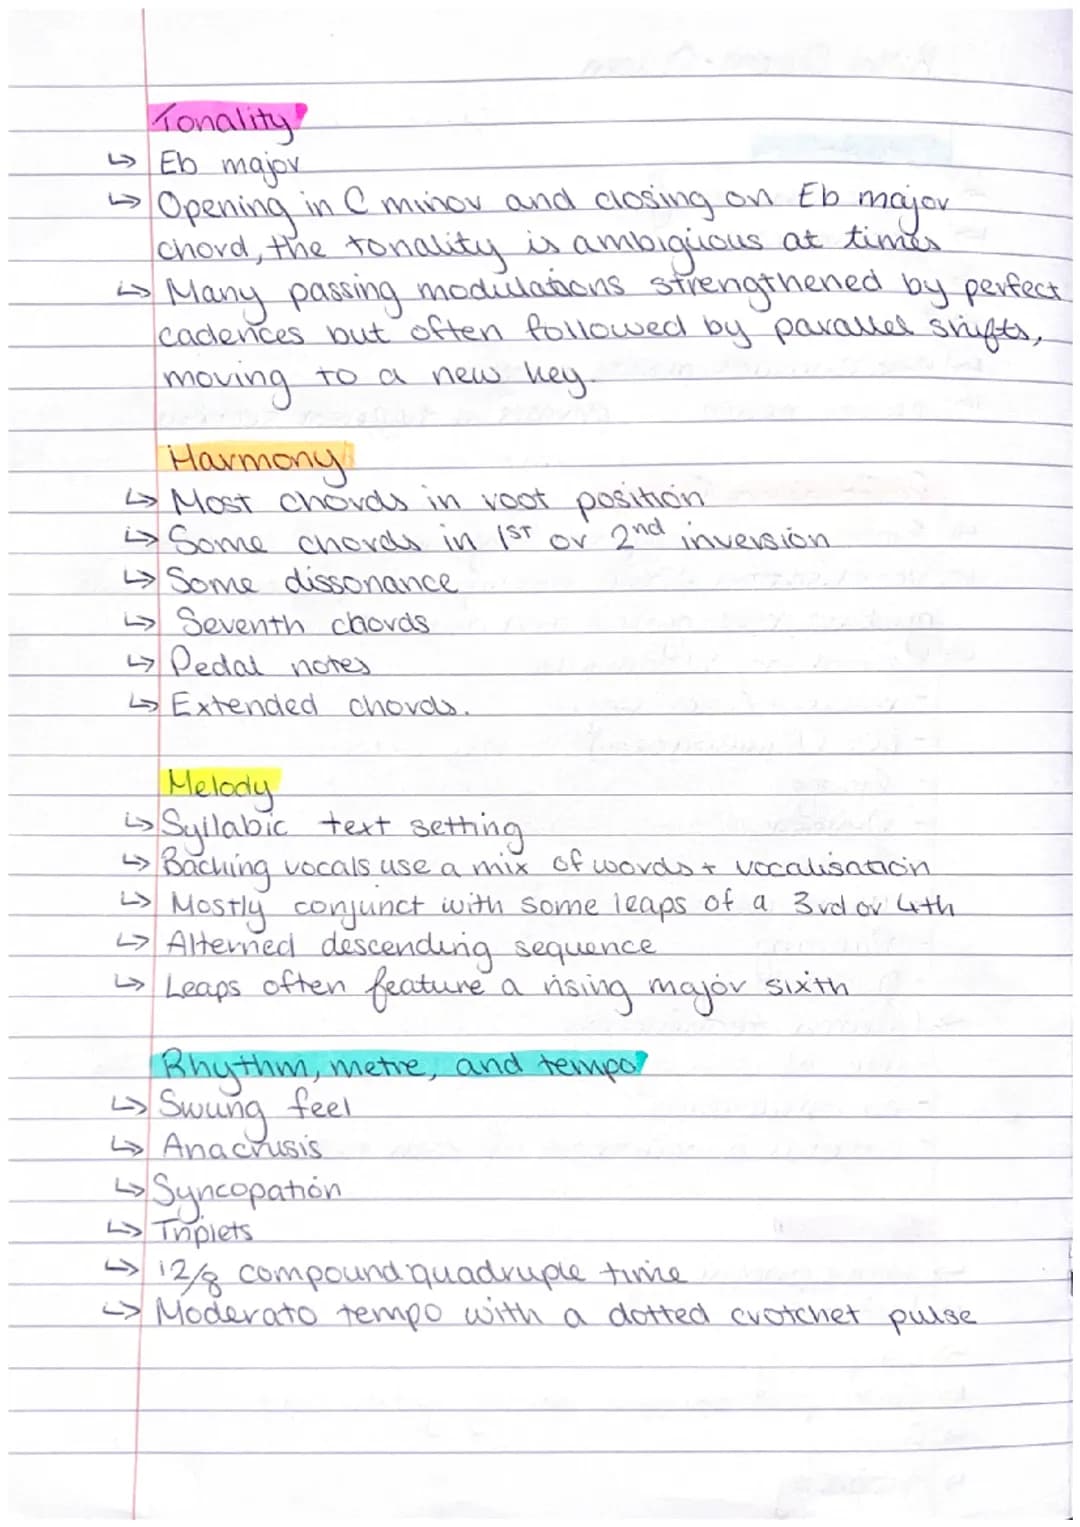 Tonality
↳ Eb major
↳ Opening in C minor and closing on Eb major
chord, the tonality is ambigúous at times
↳ Many passing modulations strengthened by perfect
cadences but often followed by parallel shifts,
moving to a new key.
Harmony
↳ Most chords in root position
↳ Some chords in 1st or 2nd inversion
↳ Some dissonance
↳ Seventh chords
↳ Pedal notes
↳ Extended chords.
Melody
↳ Syllabic text setting
↳ Backing vocals use a mix of words + vocalisation
↳ Mostly conjunct with some leaps of a 3rd or 4th
↳ Alterned descending sequence
↳ Leaps often feature a rising major sixth
Rhythm, metre, and tempo
↳ Swung feel
↳ Anacrusis
↳ Syncopation
↳ Triplets
↳ 12/8 compound quadruple time
↳ Moderato tempo with a dotted crotchet pulse